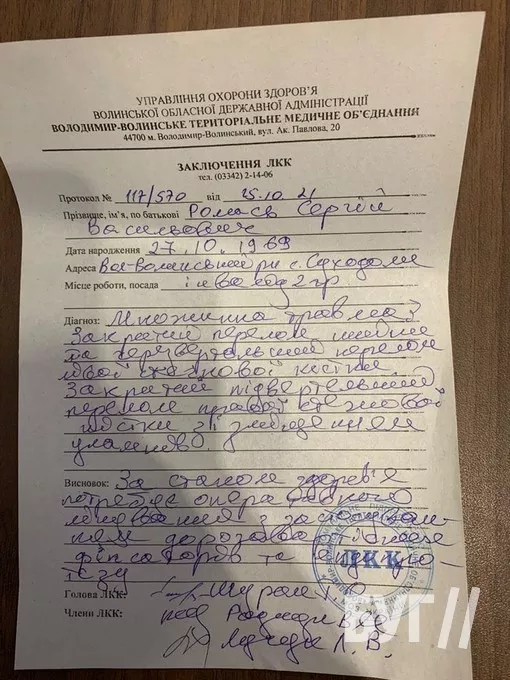 УПРАВЛІННЯ ОХОРОНИ ЗДОРОВ'Я
ВОЛИНСЬКОЇ ОБЛАСНОЇ ДЕРЖАВНОЇ АДМІНІСТРАЦІЇ
ВОЛОДИМИР-ВОЛИНСЬКЕ ТЕРИТОРІАЛЬНЕ МЕДИЧНЕ ОБ'ЄДНАННЯ
44700 м. Володимир-Волинський, вул. Ак. Павлова, 20
ЗАКЛЮЧЕННЯ ЛКК
тел. (03342) 2-14-06
Протокол № 117/570 від 25.10.21
Прізвище, ім'я, по батькові Сергій
Васильович
Дата народження 27.10.1969
Адреса с. Суходоли
Місце роботи, посада інвалід 2 гр
Діагноз: Множинна травма
Закритий перелом шийки
та черезвертельний перелом
лівої стегнової кістки.
Закритий підвертельний
перелом правої стегнової
кістки зі зміщенням
уламків.
Висновок: За станом здоров'я
потребує оперативного
лікування з застосуван-
ням
фіксаторів та ендопро-
тезу
ЛКК
Голова ЛКК:
Члени ЛКК:
Л. В.
БУГ //